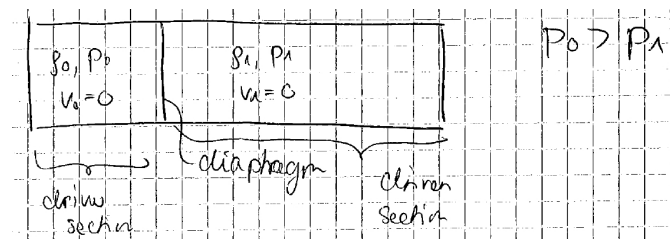 ρ₀, P₀
v₀=0
ρ₁, P₁
v₁=0
P₀ > P₁
diaphragm
driver
section
driven
section